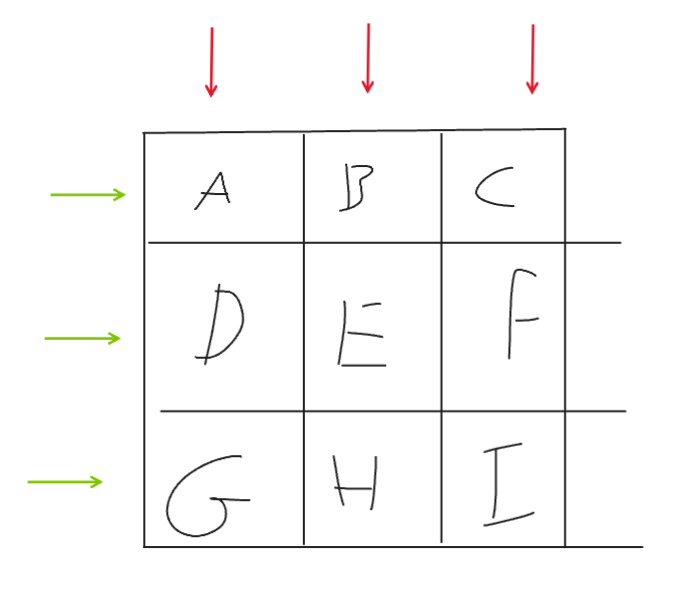 A B C
D E F
G H I